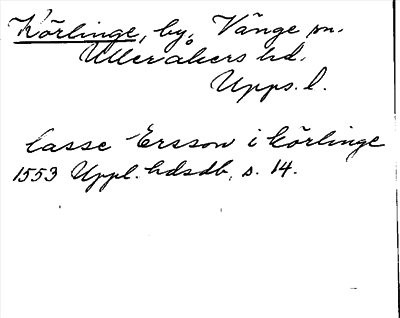 Körlinge, by, Vänge sn.
Ulleråkers hd.
Upps. l.
lasse Ersson i körlinge
1553 Uppl. hdsdb, s. 14.